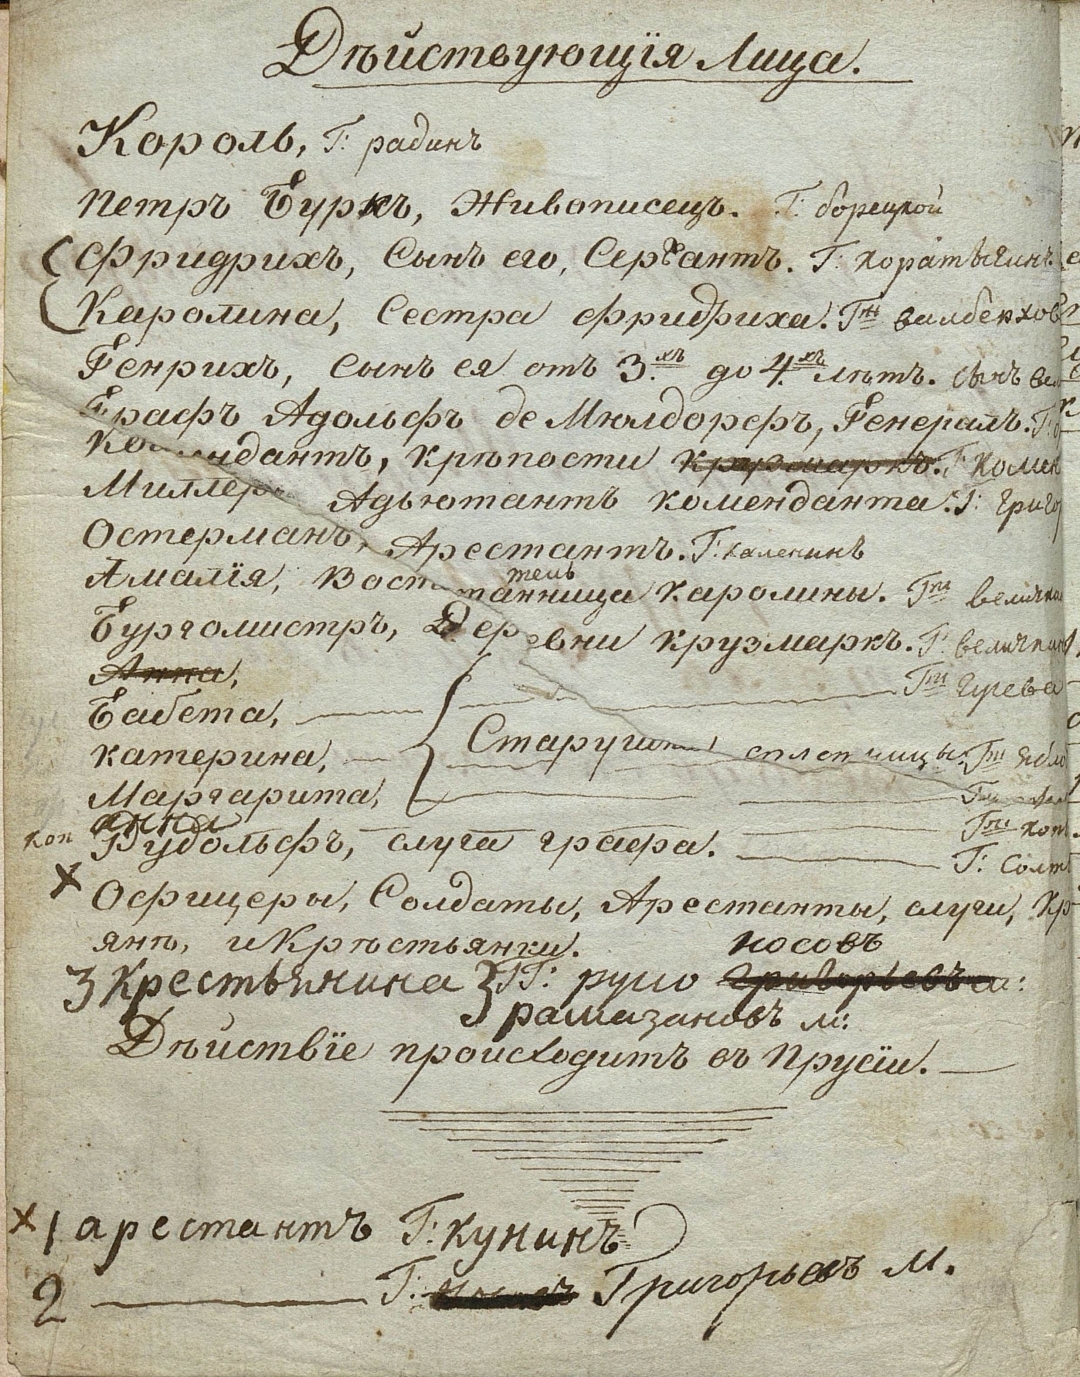 Дѣйствующія Лица.
Король, Г: радинъ
Петръ Буркъ, Живописецъ. Г: борецкой
Фридрихъ, Сынъ его, Сержантъ. Г:
Каролина, Сестра Фридриха. Гжи валберхов
Генрихъ, сынъ ея отъ 3.хъ до 4.хъ лѣтъ. сынъ
Графъ Адольфъ де Мюлдорфъ, Генералъ. Г:
Комендантъ, крѣпости крузмаркъ. Г
Миллеръ Адъютантъ коменданта. Г: григо
Остерманъ, Арестантъ. Г: каленинъ
тель
Амалія, Воспитанница Каролины. Гжи
Бургомистръ, Деревни крузмаркъ. Г: величкинъ
Анна,
Гжи
Бабета,
Старушки сплетницы. Гжи
катерина,
Маргарита,
Гжи
анна
кон
Рудольфъ, слуга графа.
Г:
х Офицеры, Солдаты, Арестанты, слуги, Кр
янѣ, и Крѣстьянки. носовъ
3 крестьянина ГГ: рушо Григорьевъ
рамазановъ м:
Дѣйствіе происходитъ въ Прусіи.
х 1 арестантъ Г: Кунинъ
2 Г: Григорьевъ м.